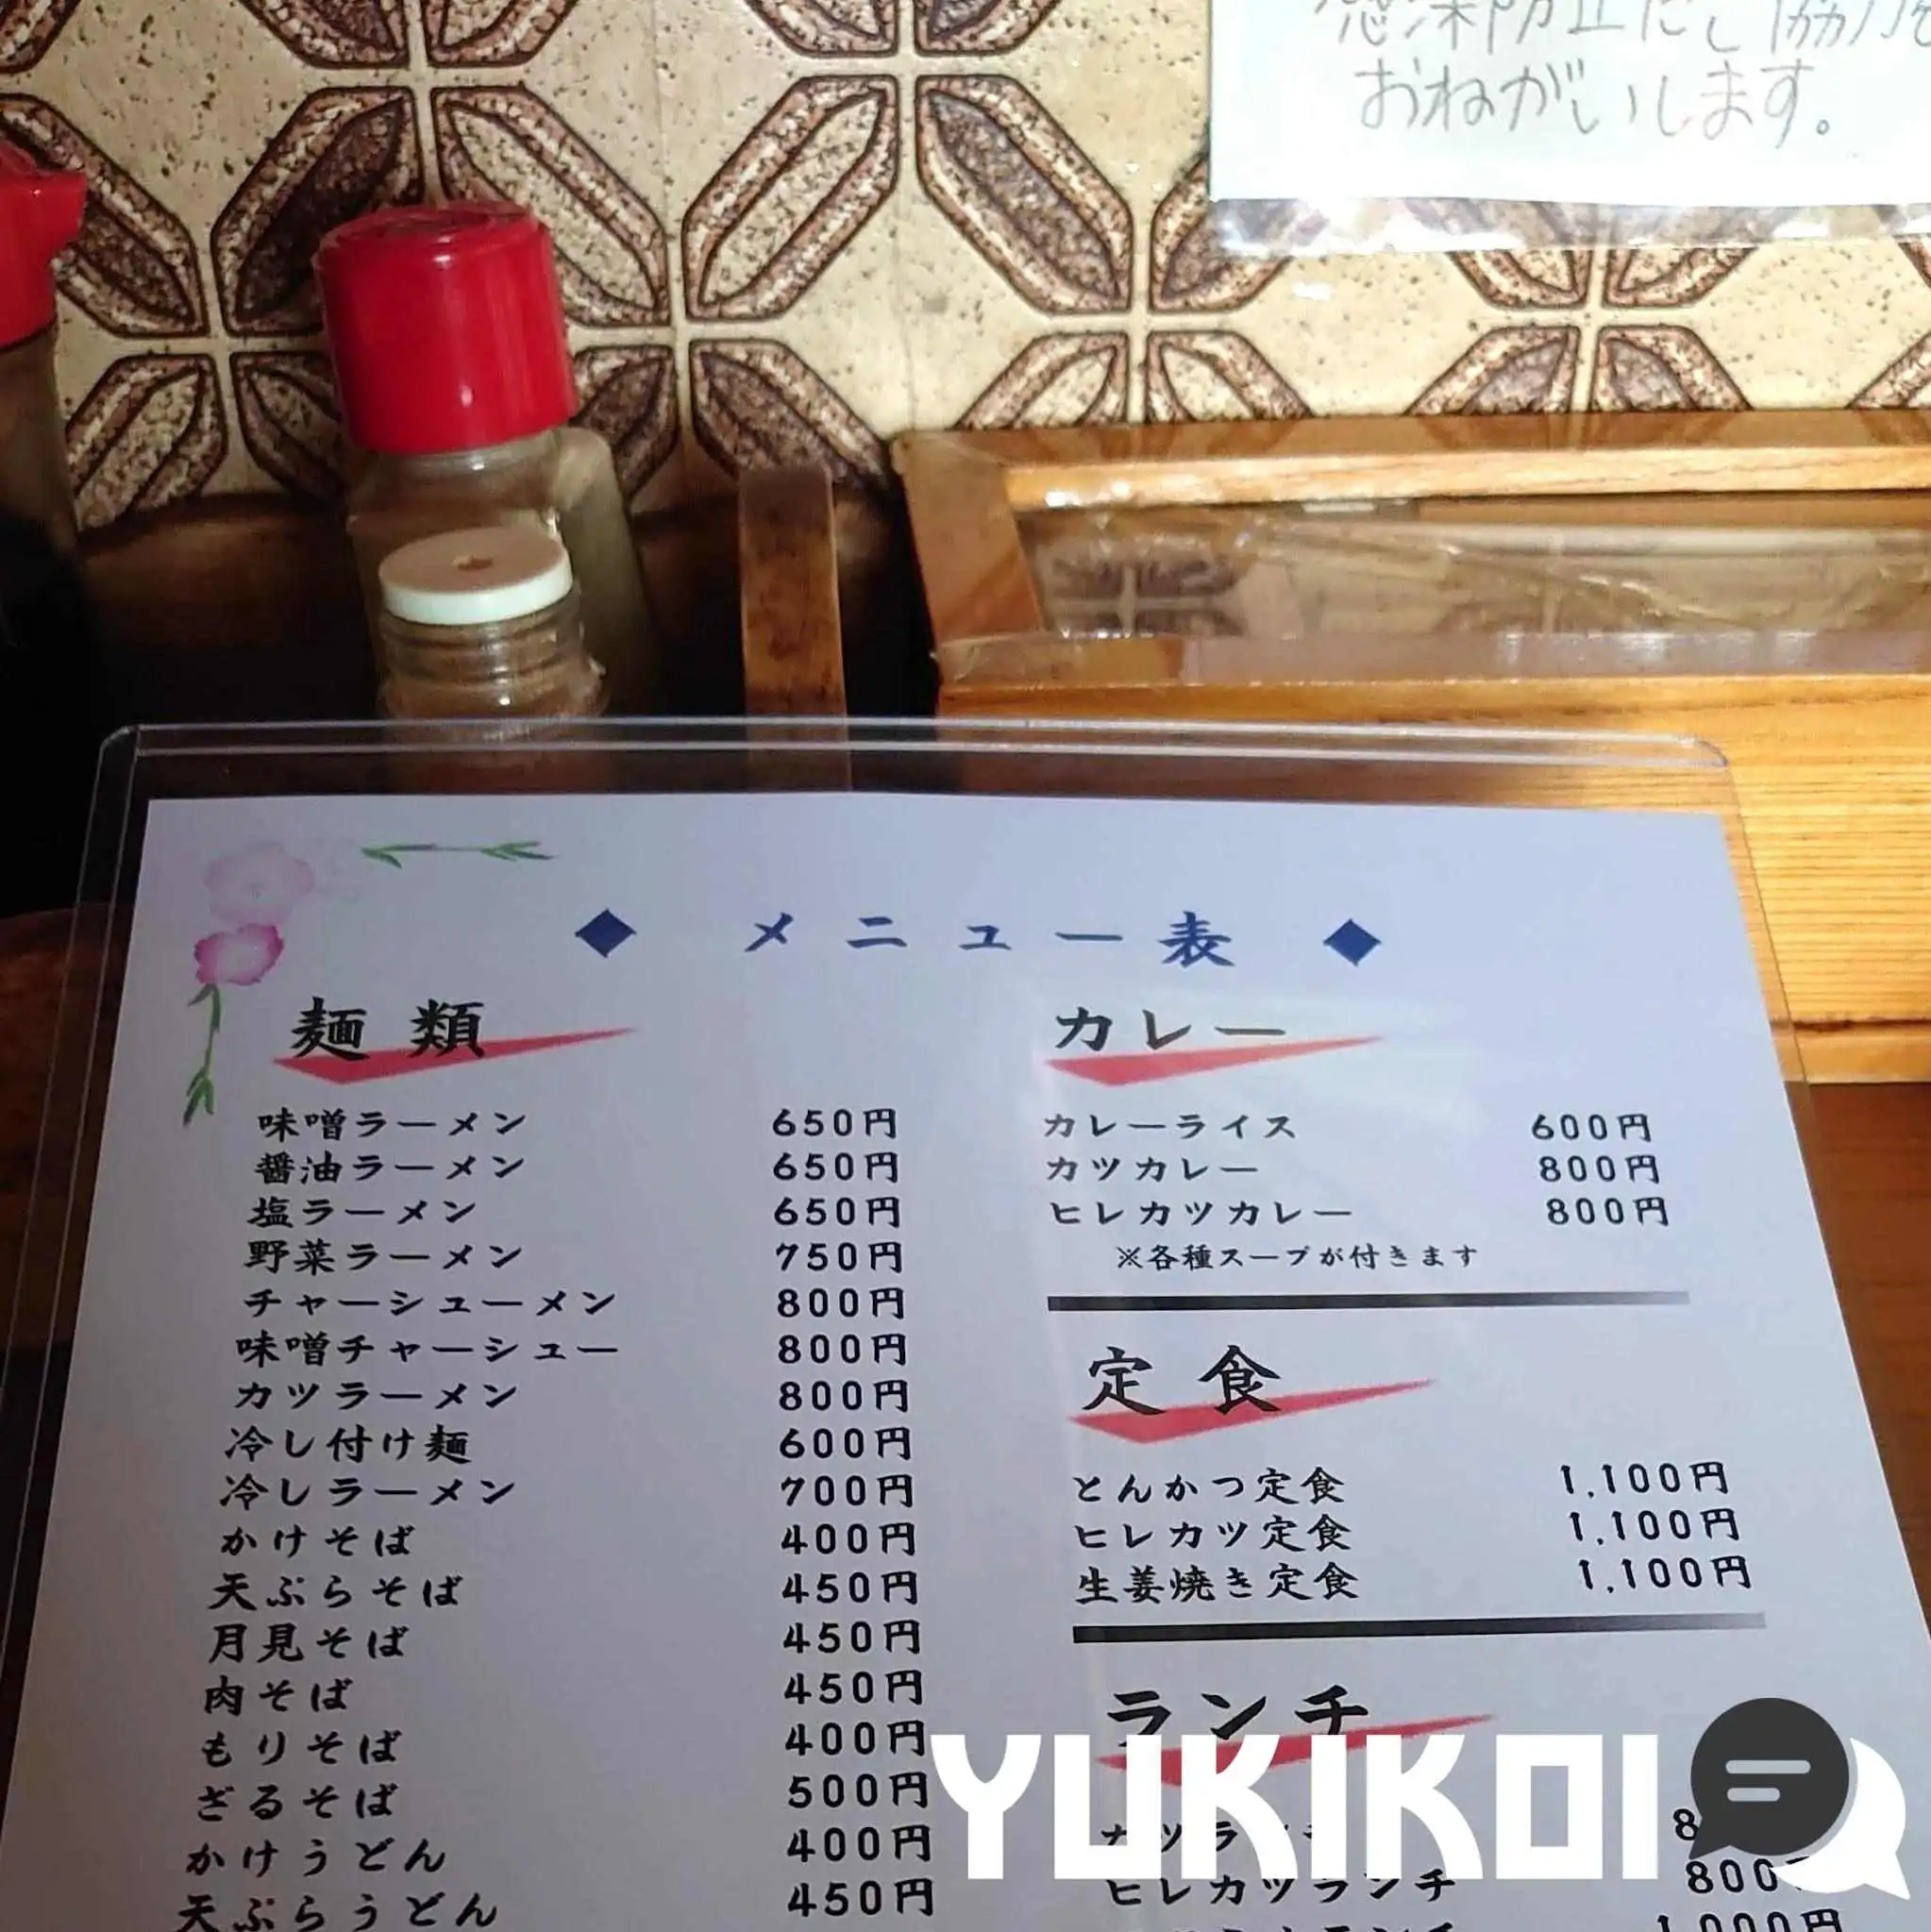 感染防止にご協力を
おねがいします。
◆ メニュー表 ◆
麺類
味噌ラーメン 650円
醤油ラーメン 650円
塩ラーメン 650円
野菜ラーメン 750円
チャーシューメン 800円
味噌チャーシュー 800円
カツラーメン 800円
冷し付け麺 600円
冷しラーメン 700円
かけそば 400円
天ぷらそば 450円
月見そば 450円
肉そば 450円
もりそば 400円
ざるそば 500円
かけうどん 400円
天ぷらうどん 450円
カレー
カレーライス 600円
カツカレー 800円
ヒレカツカレー 800円
※各種スープが付きます
定食
とんかつ定食 1,100円
ヒレカツ定食 1,100円
生姜焼き定食 1,100円
ランチ
カツランチ 8
ヒレカツランチ 800
ランチ 1,000円
YUKIKOI